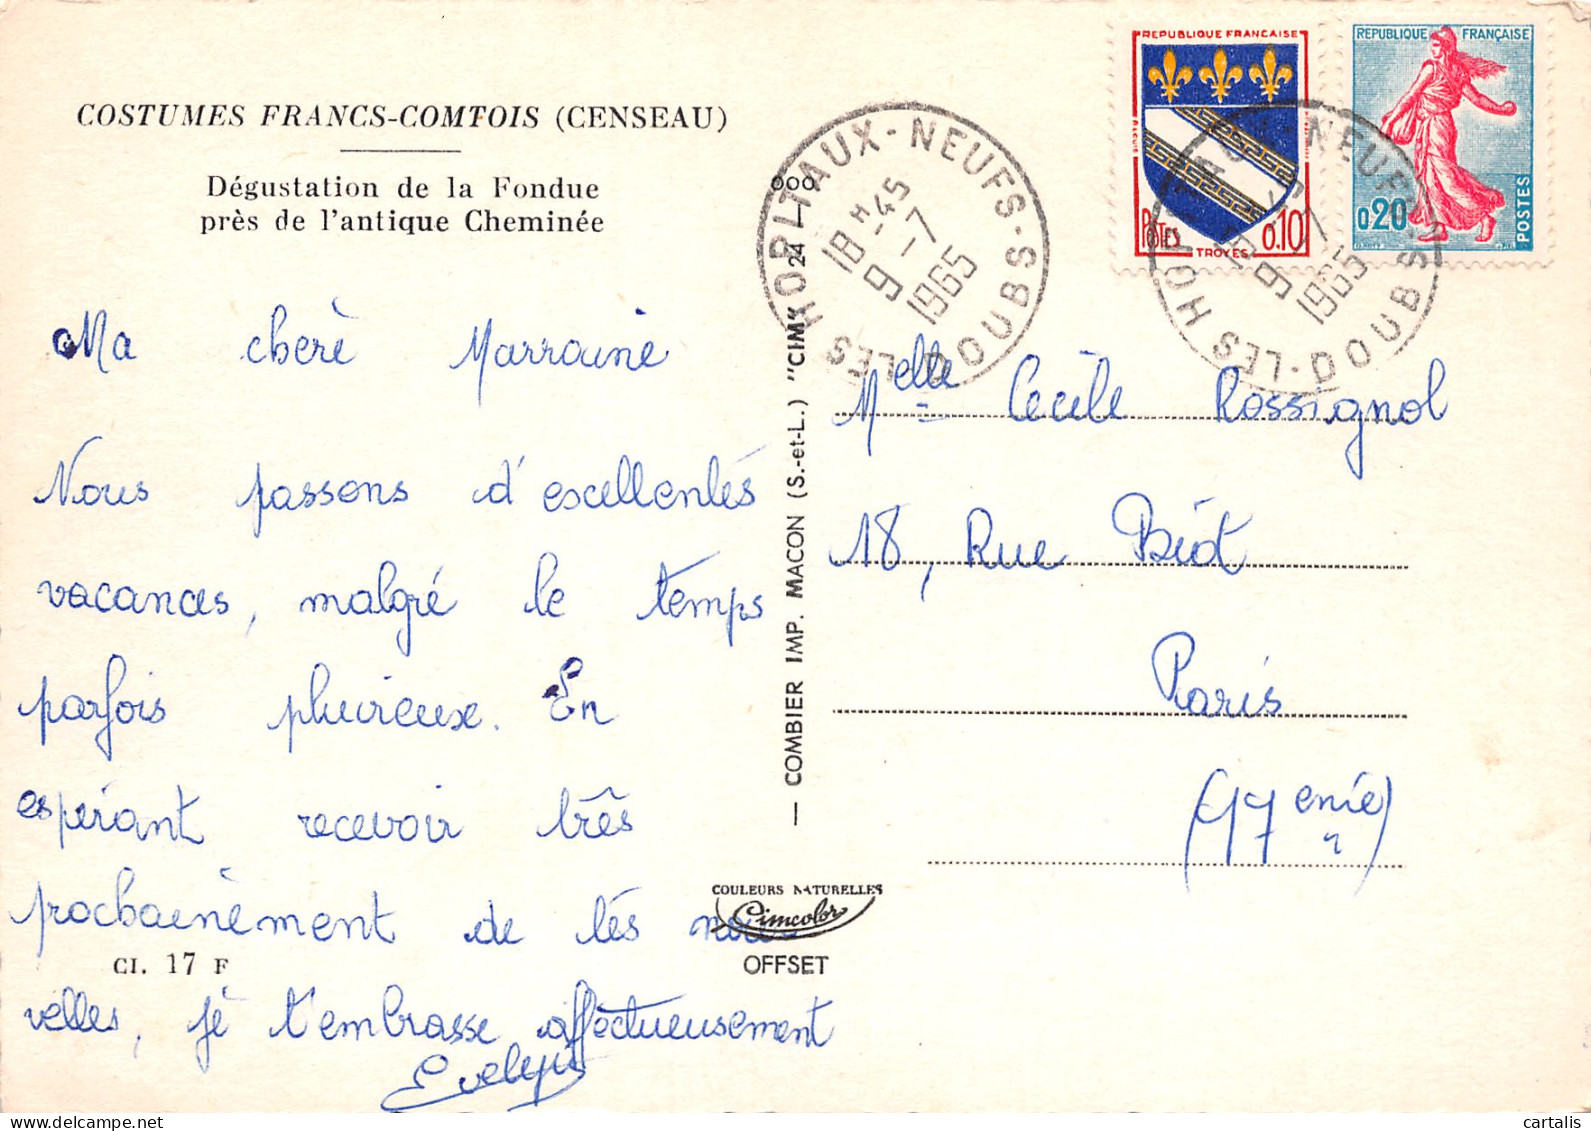 COSTUMES FRANCS-COMTOIS (CENSEAU)
Dégustation de la Fondue
près de l'antique Cheminée
Ma chère Marraine
Nous passons d'excellentes
vacances, malgré le temps
parfois pluvieux. En
espérant recevoir très
prochainement de tes nou-
velles, je t'embrasse affectueusement
Evelyne
CI. 17 F
— COMBIER IMP. MACON (S.-et-L.) "CIM" 24-1 000
COULEURS NATURELLES
Cimcolor
OFFSET
LES HOPITAUX-NEUFS-DOUBS
18 H 45
9 - 7
1965
REPUBLIQUE FRANCAISE
POSTES 0.10
TROYES
REPUBLIQUE FRANÇAISE
0,20
POSTES
LES HOPITAUX-NEUFS-DOUBS
18 H 45
9 - 7
1965
Melle Cécile Rossignol
18, Rue Biot
Paris
(17 enie)